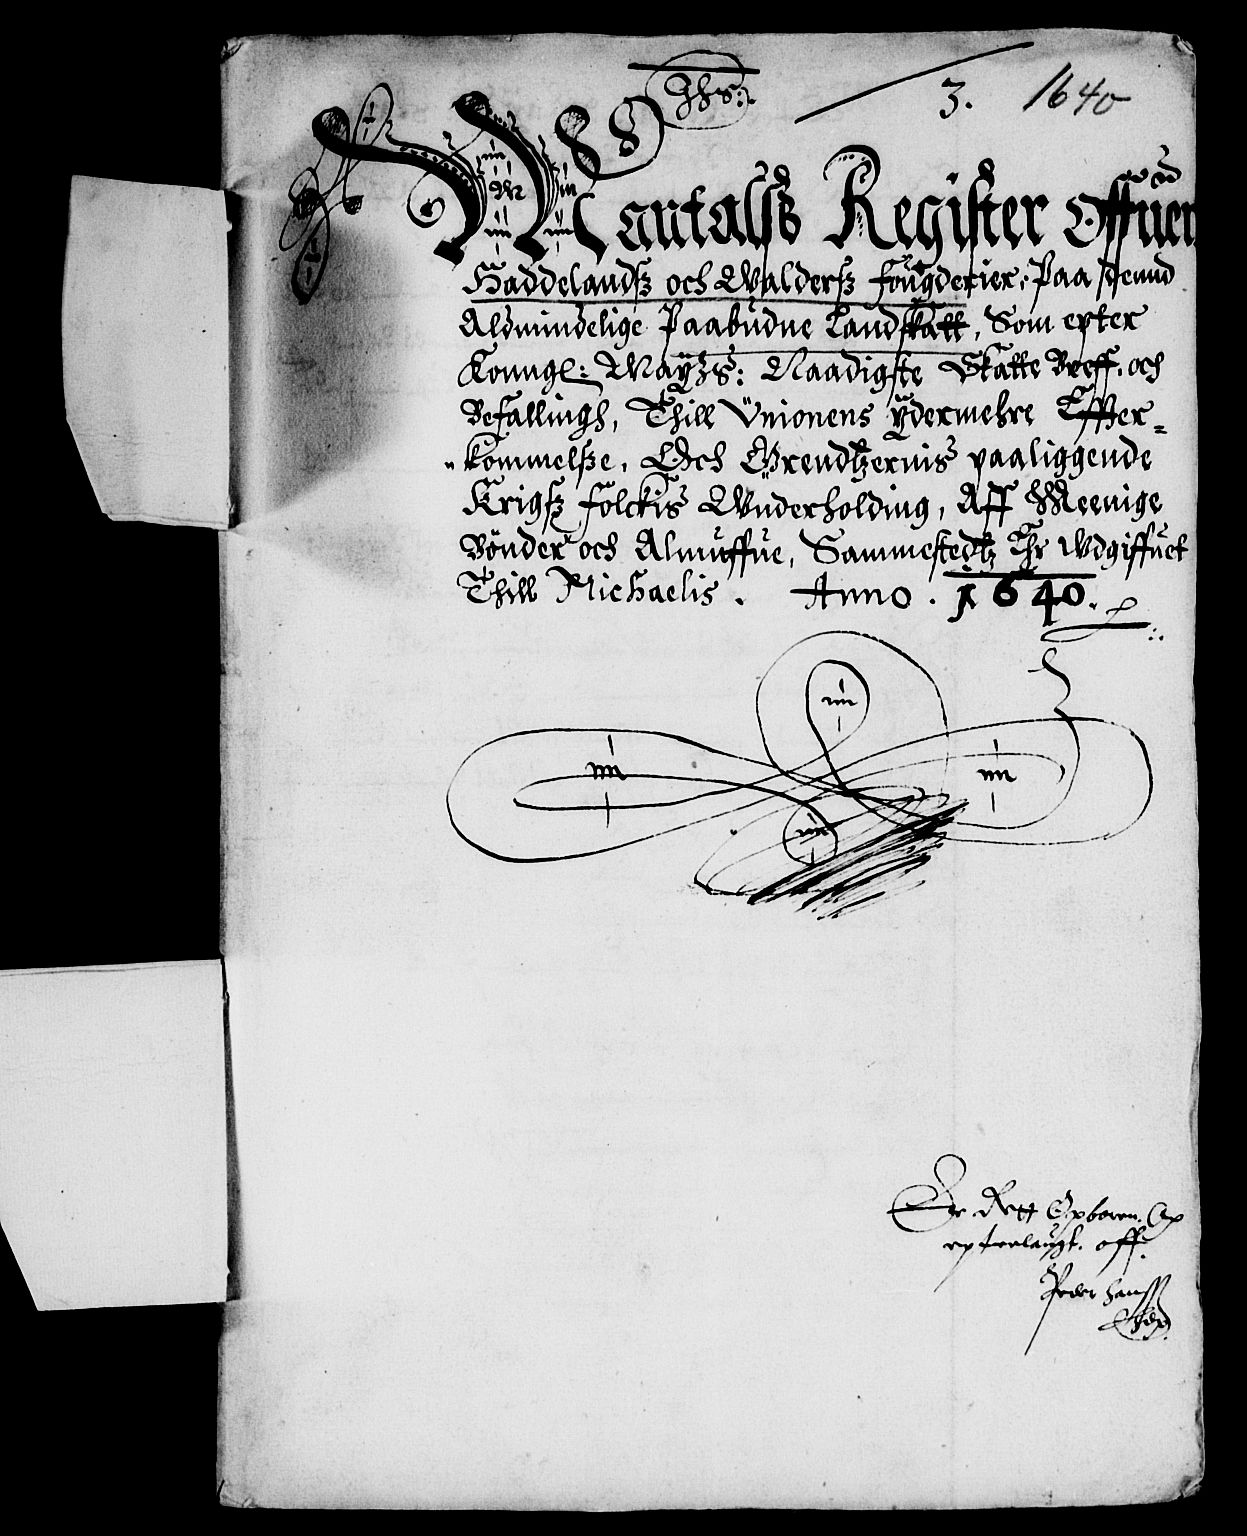 Jhs:
3. 1640
Mantalsß Register Offuer
Haddelandsß och Walderß fougderier, Paa dennd
Aldmindelige Paabudne Landskatt, Som epter
Konngl: Mayzs: Naadigste Skatte Breff. och
Befallingh, Thill Unionens ÿdermehre Effter-
kommelße, Och Grendtzernis paaliggende
Krigsß folckis Wnderholding, Aff Meenige
Bønder och Almuffue, Sammestedtz Er Wdgiffuet
Thill Michaelis. Anno. 1640.
Peder Hanss